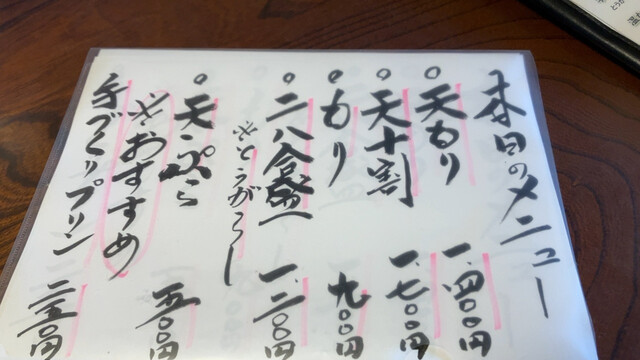 本日のメニュー
○天もり 一、四〇〇円
○天十割 一、七〇〇円
○もり 九〇〇円
○二八合盛 一、二〇〇円
※とうがらし
○天ぷら 五〇〇円
※おすすめ
手づくりプリン 二五〇円